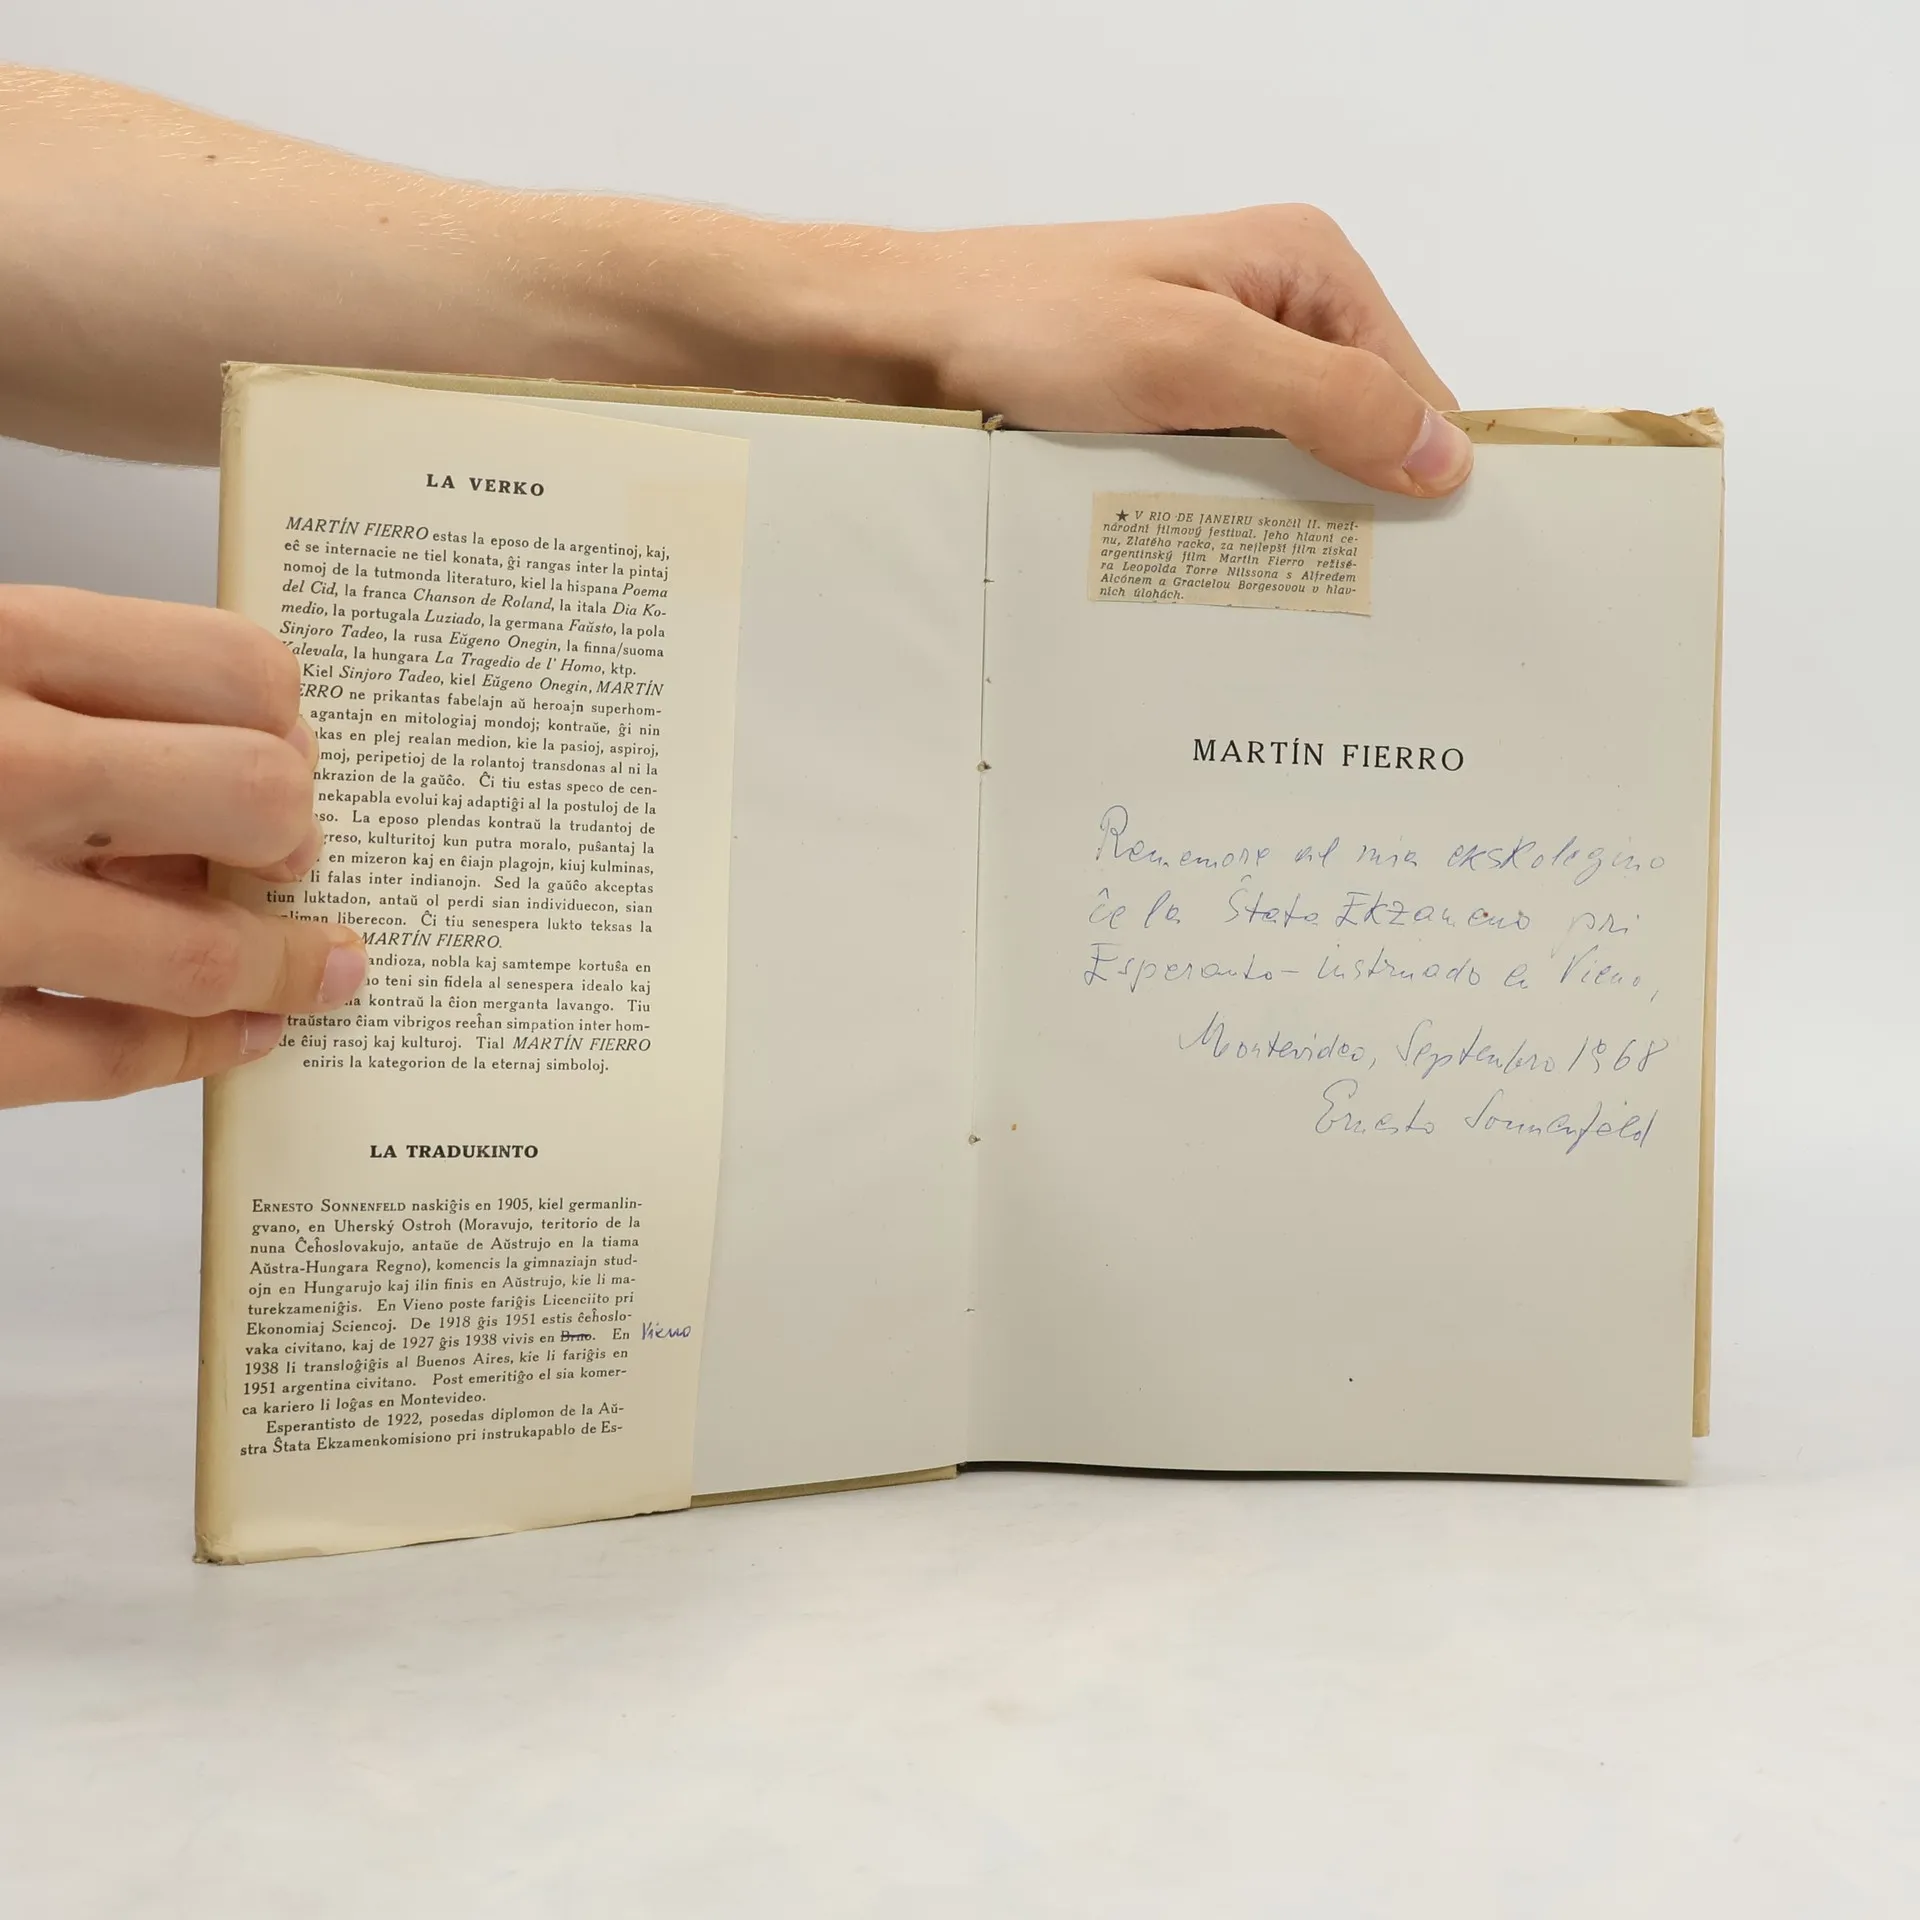 LA VERKO
MARTÍN FIERRO estas la eposo de la argentinoj, kaj,
eĉ se internacie ne tiel konata, ĝi rangas inter la pintaj
nomoj de la tutmonda literaturo, kiel la hispana Poema
del Cid, la franca Chanson de Roland, la itala Dia Ko-
medio, la portugala Luziado, la germana Faŭsto, la pola
Sinjoro Tadeo, la rusa Eŭgeno Onegin, la finna/suoma
Kalevala, la hungara La Tragedio de l' Homo, ktp.
Kiel Sinjoro Tadeo, kiel Eŭgeno Onegin, MARTÍN
ERRO ne prikantas fabelajn aŭ heroajn superhom-
agantajn en mitologiaj mondoj; kontraŭe, ĝi nin
kas en plej realan medion, kie la pasioj, aspiroj,
moj, peripetioj de la rolantoj transdonas al ni la
nkrazion de la gaŭĉo. Ĉi tiu estas speco de cen-
nekapabla evolui kaj adaptiĝi al la postuloj de la
so. La eposo plendas kontraŭ la trudantoj de
greso, kulturitoj kun putra moralo, puŝantaj la
en mizeron kaj en ĉiajn plagojn, kiuj kulminas,
li falas inter indianojn. Sed la gaŭĉo akceptas
tiun luktadon, antaŭ ol perdi sian individuecon, sian
liman liberecon. Ĉi tiu senespera lukto teksas la
MARTÍN FIERRO.
andioza, nobla kaj samtempe kortuŝa en
no teni sin fidela al senespera idealo kaj
na kontraŭ la ĉion merganta lavango. Tiu
traŭstaro ĉiam vibrigos reeĥan simpation inter hom-
de ĉiuj rasoj kaj kulturoj. Tial MARTÍN FIERRO
eniris la kategorion de la eternaj simboloj.
LA TRADUKINTO
ERNESTO SONNENFELD naskiĝis en 1905, kiel germanlin-
gvano, en Uherský Ostroh (Moravujo, teritorio de la
nuna Ĉeĥoslovakujo, antaŭe de Aŭstrujo en la tiama
Aŭstra-Hungara Regno), komencis la gimnaziajn stud-
ojn en Hungarujo kaj ilin finis en Aŭstrujo, kie li ma-
turekzameniĝis. En Vieno poste fariĝis Licenciito pri
Ekonomiaj Sciencoj. De 1918 ĝis 1951 estis ĉeĥoslo-
vaka civitano, kaj de 1927 ĝis 1938 vivis en Brno. En Vieno
1938 li transloĝiĝis al Buenos Aires, kie li fariĝis en
1951 argentina civitano. Post emeritiĝo el sia komer-
ca kariero li loĝas en Montevideo.
Esperantisto de 1922, posedas diplomon de la Aŭ-
stra Ŝtata Ekzamenkomisiono pri instrukapablo de Es-
★ V RIO DE JANEIRU skončil II. mezi-
národní filmový festival. Jeho hlavní ce-
nu, Zlatého racka, za nejlepší film získal
argentinský film Martin Fierro režisé-
ra Leopolda Torre Nilssona s Alfredem
Alcónem a Gracielou Borgesovou v hlav-
ních úlohách.
MARTÍN FIERRO
Rememore al mia ekskolegino
ĉe la Ŝtata Ekzameno pri
Esperanto-instruado en Vieno,
Montevideo, Septembro 1968
Ernesto Sonnenfeld